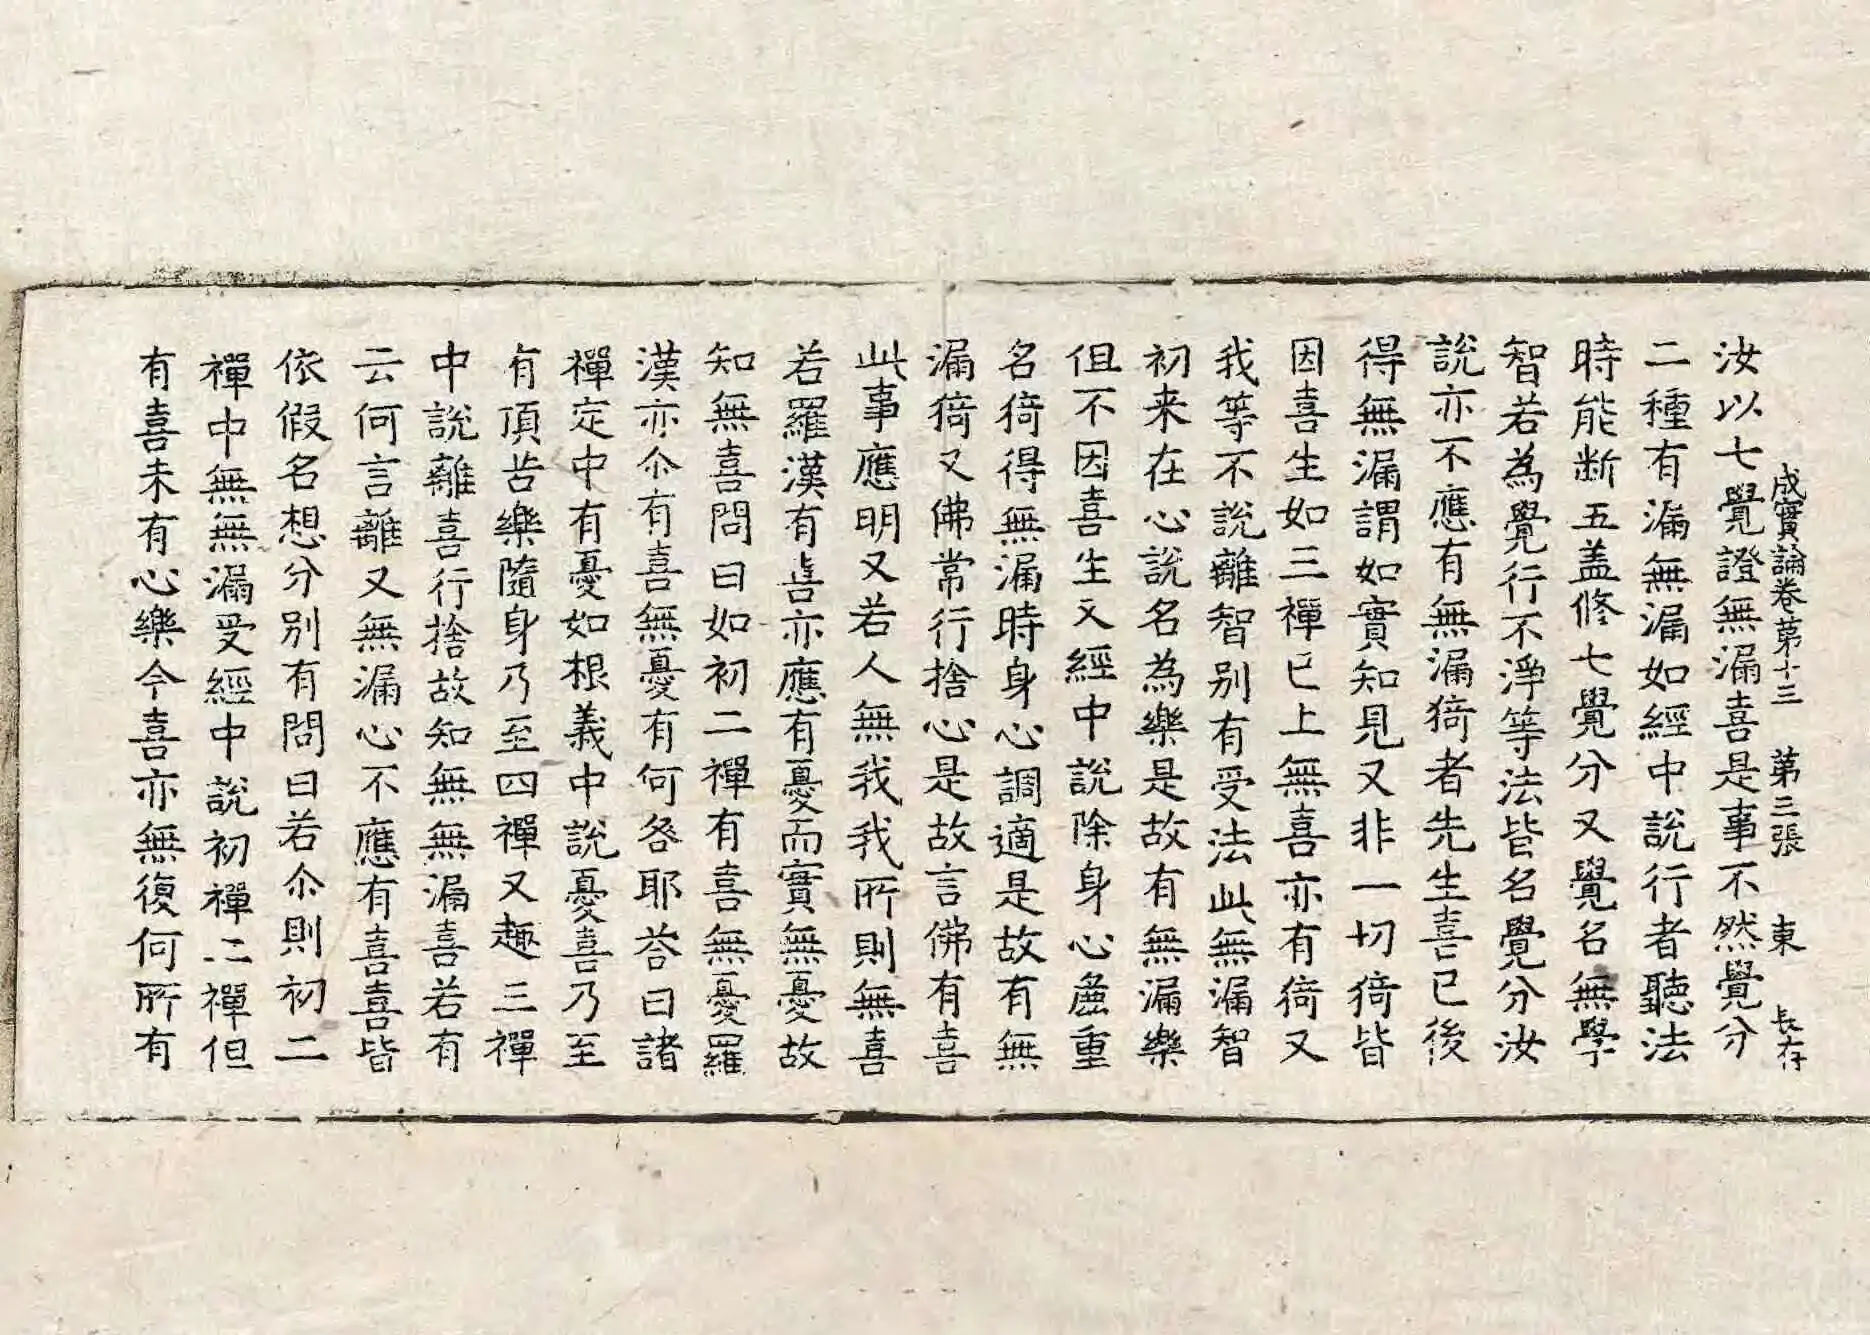 成實論卷苐十三 苐三張 東 長存
汝以七覺證無漏喜是事不然覺分
二種有漏無漏如經中說行者聽法
時能断五盖修七覺分又覺名無學
智若為覺行不淨等法皆名覺分汝
說亦不應有無漏猗者先生喜已後
得無漏謂如實知見又非一切猗皆
因喜生如三禪已上無喜亦有猗又
我等不說離智别有受法此無漏智
初来在心說名為樂是故有無漏樂
但不因喜生又經中說除身心麁重
名猗得無漏時身心調適是故有無
漏猗又佛常行捨心是故言佛有喜
此事應明又若人無我我所則無喜
若羅漢有喜亦應有憂而實無憂故
知無喜問曰如初二禪有喜無憂羅
漢亦尒有喜無憂有何咎耶荅曰諸
禪定中有憂如根義中說憂喜乃至
有頂苦樂隨身乃至四禪又趣三禪
中說離喜行捨故知無無漏喜若有
云何言離又無漏心不應有喜喜皆
依假名想分别有問曰若尒則初二
禪中無無漏受經中說初禪二禪但
有喜未有心樂今喜亦無復何所有